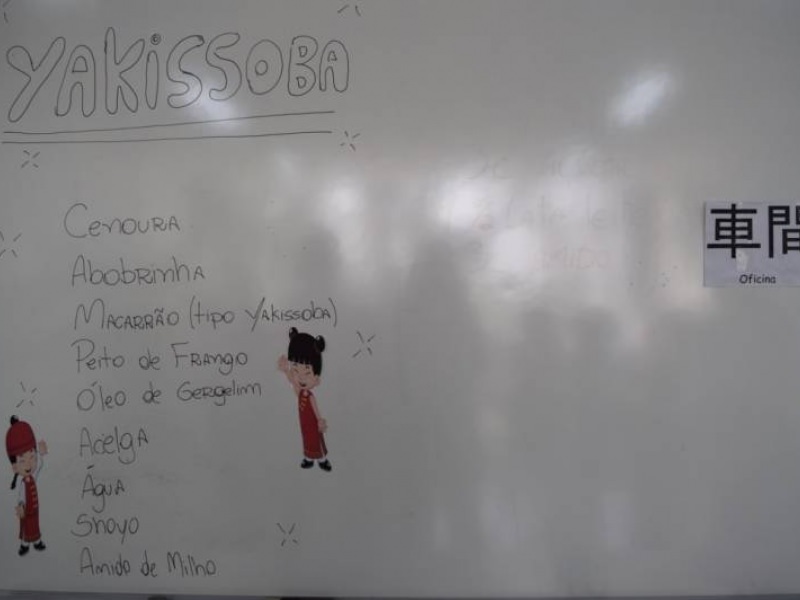 YAKISSOBA
Cenoura
Abobrinha
Macarrão (tipo Yakissoba)
Peito de Frango
Óleo de Gergelim
Acelga
Água
Shoyo
Amido de Milho
車間
Oficina